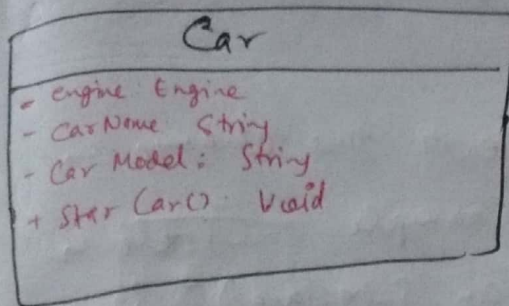 Car
- engine: Engine
- CarName String
- Car Model: String
+ Star Car(): Void